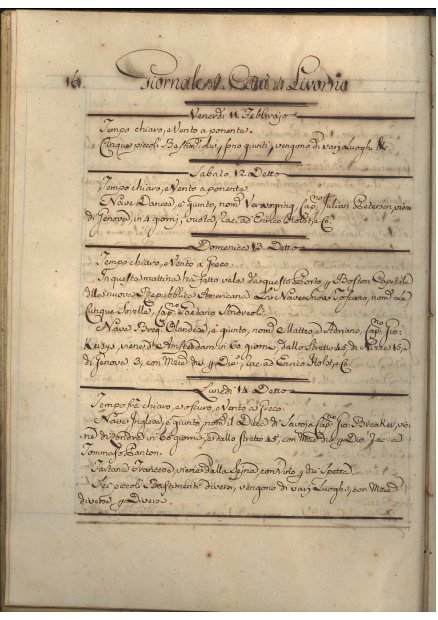 16. Giornale della Città di Livorno
Venerdì 11 Febbrajo
Tempo chiaro, e Vento a ponente.
Cinque piccoli Bastim.ti div. sono giunti, vengono di varj Luoghi &.
Sabato 12. Detto
Tempo chiaro, e Vento a ponente.
Nave Danese, è giunto, nom.
Cap.no Julian Petersen, viene
di Genova in 4 giorni, vuota, Rac. ad Enrico
Domenica 13. Detto
Tempo chiaro, e Vento a Greco.
In questa mattina ha fatto vela da questo Porto p Boston Capitale
della nuova Repubblica Americana La Nave Toscano, nom. Le
Cinque Sorelle, Cap.no Gaetano Andreoli.
Nave Olandese, è giunto, nom. Matteo, e Adriano, Cap.no Gio:
viene d'Amsterdam in 60 giorni, dallo Stretto 45, di 15, e
di Genova 3, con Merce div. p Div. Rac. ad Enrico
Lunedì 14. Detto
Tempo frà chiaro, e oscuro, e Vento a Greco.
Nave Inglese, è giunto, nom. il Duca di Savoja Cap.no Gio: Breaker, vie-
ne di Londra in 60 giorni, e dallo stretto 45, con Merce div. p Div. Rac. a
Tommaso Panton.
Tartana Francese, viene dalla con Vino p
Sei piccoli Bastimenti diversi, vengono di varj Luoghi, con Merce
diverse p Diversi.